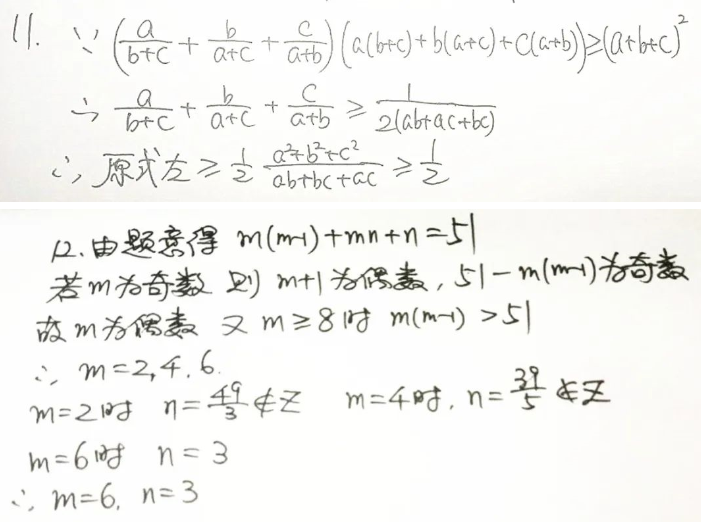 11. ∵ (a/(b+c) + b/(a+c) + c/(a+b)) (a(b+c)+b(a+c)+c(a+b)) ≥ (a+b+c)²
∴ a/(b+c) + b/(a+c) + c/(a+b) ≥ 1/(2(ab+ac+bc))
∴ 原式左 ≥ 1/2 (a²+b²+c²)/(ab+bc+ac) ≥ 1/2
12. 由题意得 m(m-1)+mn+n=51
若m为奇数 则 m+1为偶数, 51-m(m-1)为奇数
故m为偶数 又 m≥8时 m(m-1)>51
∴ m=2,4,6.
m=2时 n=49/3∉Z m=4时, n=39/5∉Z
m=6时 n=3
∴ m=6, n=3